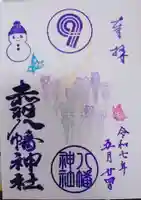 奉拝
赤羽八幡神社
八幡神社
令和七年
五月廿四日